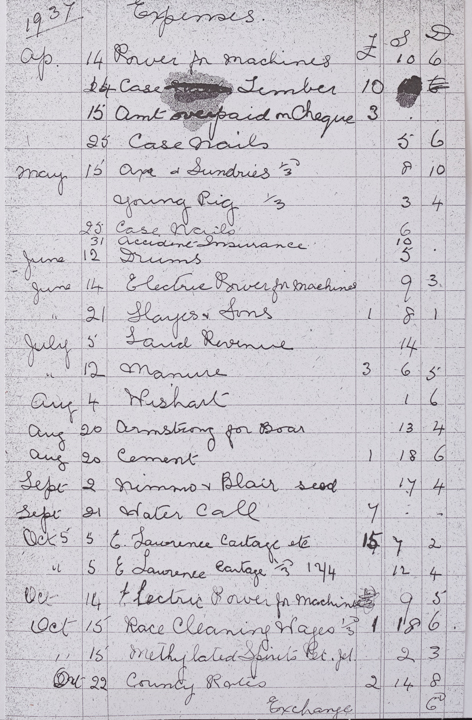 1937 Expenses.
£ S D
Ap. 14 Power for machines 10 6
14 Case Timber 10
15 Amt overpaid on Cheque 3 . .
" 25 Case Nails 5 6
May 15 Axe & Sundries 1/3 8 10
Young Pig 1/3 3 4
25 Case Nails 6
31 Accident Insurance 10
June 12 Drums 5 .
June 14 Electric Power for Machines 9 3.
" 21 Hayes & Sons 1 8 1
July 5 Land Revenue 14
" 12 Manure 3 6 5
Aug 4 Wishart 1 6
Aug 20 Armstrong for Boar 13 4
Aug 20 Cement 1 18 6
Sept 2 Nimmo & Blair seed 17 4
Sept 21 Water Call 7 : -
Oct 5 5 E. Lawrence Cartage etc 15 7 2
" 5 E Lawrence Cartage 1/3 12/4 12 4
Oct 14 Electric Power for Machines 9 5
Oct 15 Race Cleaning Wages 1/3 1 18 6.
" 15 Methylated Spirits 2 3
Oct 22 County Rates 2 14 8
Exchange 6D